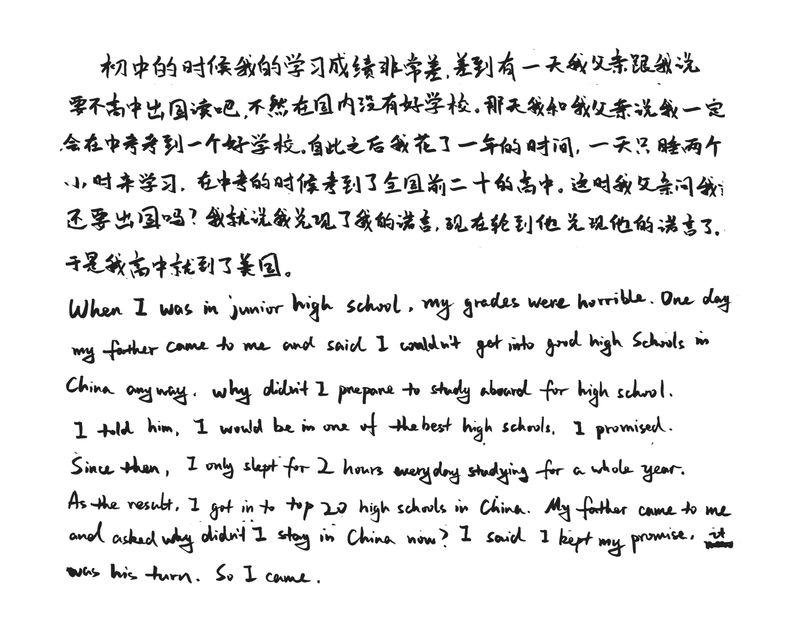 初中的时候我的学习成绩非常差,差到有一天我父亲跟我说
要不高中出国读吧,不然在国内没有好学校。那天我和我父亲说我一定
会在中考考到一个好学校。自此之后我花了一年的时间,一天只睡两个
小时来学习,在中考的时候考到了全国前二十的高中。这时我父亲问我:
还要出国吗?我就说我兑现了我的诺言,现在轮到他兑现他的诺言了。
于是我高中就到了美国。
When I was in junior high school, my grades were horrible. One day
my father came to me and said I couldn't get into good high Schools in
China anyway. why didn't I prepare to study aboard for high school.
I told him, I would be in one of the best high schools. I promised.
Since then, I only slept for 2 hours everyday studying for a whole year.
As the result, I got in to top 20 high schools in China. My father came to me
and asked why didn't I stay in China now? I said I kept my promise. it
was his turn. So I came.